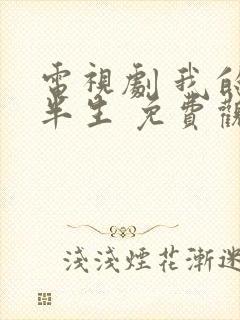 電視劇我的
半生 免費觀
淺淺煙花漸迷